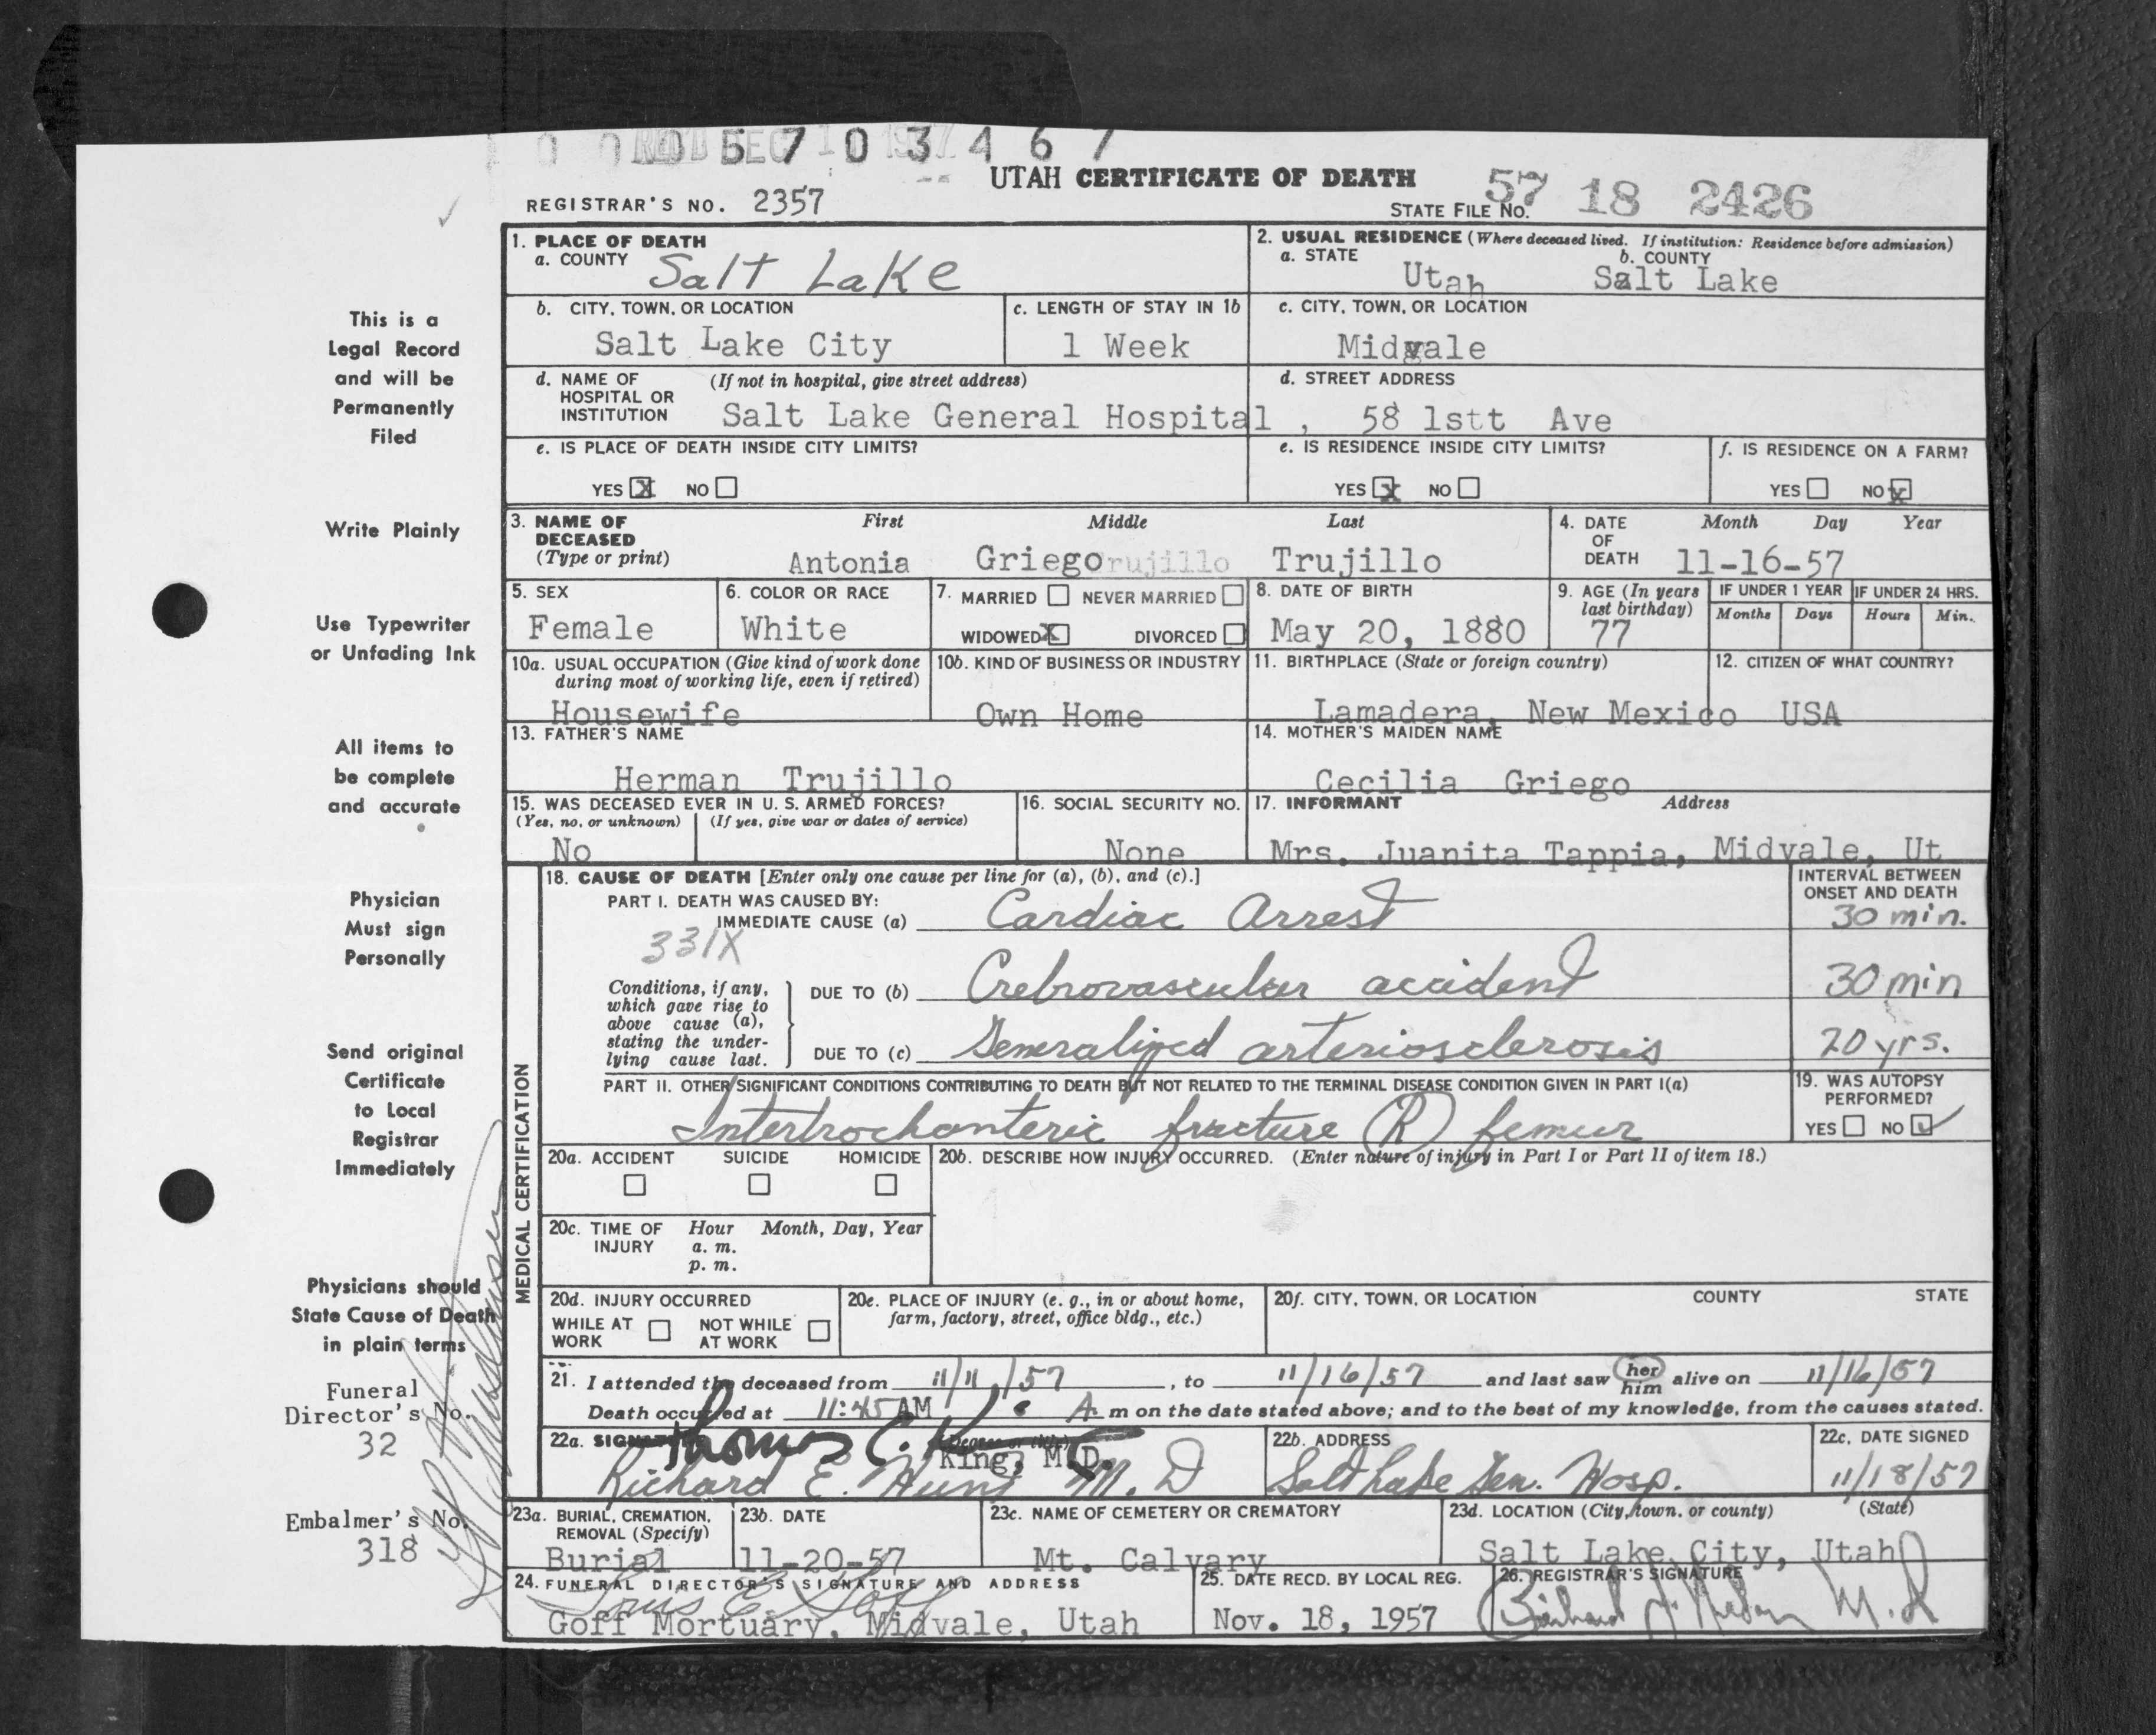 0 0 0 5 7 0 3 4 6 7
UTAH CERTIFICATE OF DEATH
REGISTRAR'S NO. 2357
STATE FILE NO. 57 18 2426
1. PLACE OF DEATH
a. COUNTY Salt Lake
2. USUAL RESIDENCE (Where deceased lived. If institution: Residence before admission)
a. STATE Utah b. COUNTY Salt Lake
b. CITY, TOWN, OR LOCATION Salt Lake City
c. LENGTH OF STAY IN 1b 1 Week
c. CITY, TOWN, OR LOCATION Midvale
d. NAME OF HOSPITAL OR INSTITUTION (If not in hospital, give street address) Salt Lake General Hospital ,
d. STREET ADDRESS 58 1stt Ave
e. IS PLACE OF DEATH INSIDE CITY LIMITS?
YES X NO
e. IS RESIDENCE INSIDE CITY LIMITS?
YES X NO
f. IS RESIDENCE ON A FARM?
YES NO X
3. NAME OF DECEASED (Type or print)
First Middle Last
Antonia Griego Trujillo
4. DATE OF DEATH Month Day Year
11-16-57
5. SEX Female
6. COLOR OR RACE White
7. MARRIED NEVER MARRIED
WIDOWED X DIVORCED
8. DATE OF BIRTH May 20, 1880
9. AGE (In years last birthday) 77
IF UNDER 1 YEAR Months Days
IF UNDER 24 HRS. Hours Min.
10a. USUAL OCCUPATION (Give kind of work done during most of working life, even if retired)
Housewife
10b. KIND OF BUSINESS OR INDUSTRY
Own Home
11. BIRTHPLACE (State or foreign country)
Lamadera, New Mexico
12. CITIZEN OF WHAT COUNTRY?
USA
13. FATHER'S NAME
Herman Trujillo
14. MOTHER'S MAIDEN NAME
Cecilia Griego
15. WAS DECEASED EVER IN U. S. ARMED FORCES?
(Yes, no, or unknown) (If yes, give war or dates of service)
No
16. SOCIAL SECURITY NO.
None
17. INFORMANT Address
Mrs. Juanita Tappia, Midvale, Ut
MEDICAL CERTIFICATION
18. CAUSE OF DEATH [Enter only one cause per line for (a), (b), and (c).]
INTERVAL BETWEEN ONSET AND DEATH
PART I. DEATH WAS CAUSED BY:
IMMEDIATE CAUSE (a) Cardiac Arrest 30 min.
331X
Conditions, if any, which gave rise to above cause (a), stating the underlying cause last.
DUE TO (b) Crebrovascular accident 30 min
DUE TO (c) Generalized arteriosclerosis 20 yrs.
PART II. OTHER SIGNIFICANT CONDITIONS CONTRIBUTING TO DEATH BUT NOT RELATED TO THE TERMINAL DISEASE CONDITION GIVEN IN PART I(a)
Intertrochanteric fracture (R) femur
19. WAS AUTOPSY PERFORMED?
YES NO ✓
20a. ACCIDENT SUICIDE HOMICIDE
20b. DESCRIBE HOW INJURY OCCURRED. (Enter nature of injury in Part I or Part II of item 18.)
20c. TIME OF INJURY Hour Month, Day, Year
a. m.
p. m.
20d. INJURY OCCURRED
WHILE AT WORK NOT WHILE AT WORK
20e. PLACE OF INJURY (e. g., in or about home, farm, factory, street, office bldg., etc.)
20f. CITY, TOWN, OR LOCATION COUNTY STATE
21. I attended the deceased from 11/11/57, to 11/16/57 and last saw her him alive on 11/16/57
Death occurred at 11:45 AM A. m on the date stated above; and to the best of my knowledge, from the causes stated.
22a. SIGNATURE (Degree or title)
Thomas C. K
King, M.D.
Richard E. Hunt M.D
22b. ADDRESS
Salt Lake Gen. Hosp.
22c. DATE SIGNED
11/18/57
23a. BURIAL, CREMATION, REMOVAL (Specify)
Burial
23b. DATE
11-20-57
23c. NAME OF CEMETERY OR CREMATORY
Mt. Calvary
23d. LOCATION (City, town, or county) (State)
Salt Lake City, Utah
24. FUNERAL DIRECTOR'S SIGNATURE AND ADDRESS
Louis E Goff
Goff Mortuary, Midvale, Utah
25. DATE RECD. BY LOCAL REG.
Nov. 18, 1957
26. REGISTRAR'S SIGNATURE
This is a
Legal Record
and will be
Permanently
Filed
Write Plainly
Use Typewriter
or Unfading Ink
All items to
be complete
and accurate
Physician
Must sign
Personally
Send original
Certificate
to Local
Registrar
Immediately
Physicians should
State Cause of Death
in plain terms
Funeral
Director's No.
32
Embalmer's No.
318